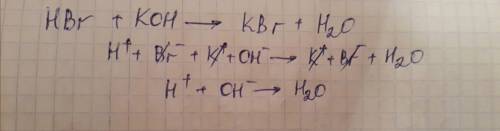 HBr + KOH → KBr + H₂O
H⁺ + Br⁻ + K⁺ + OH⁻ → K⁺ + Br⁻ + H₂O
H⁺ + OH⁻ → H₂O